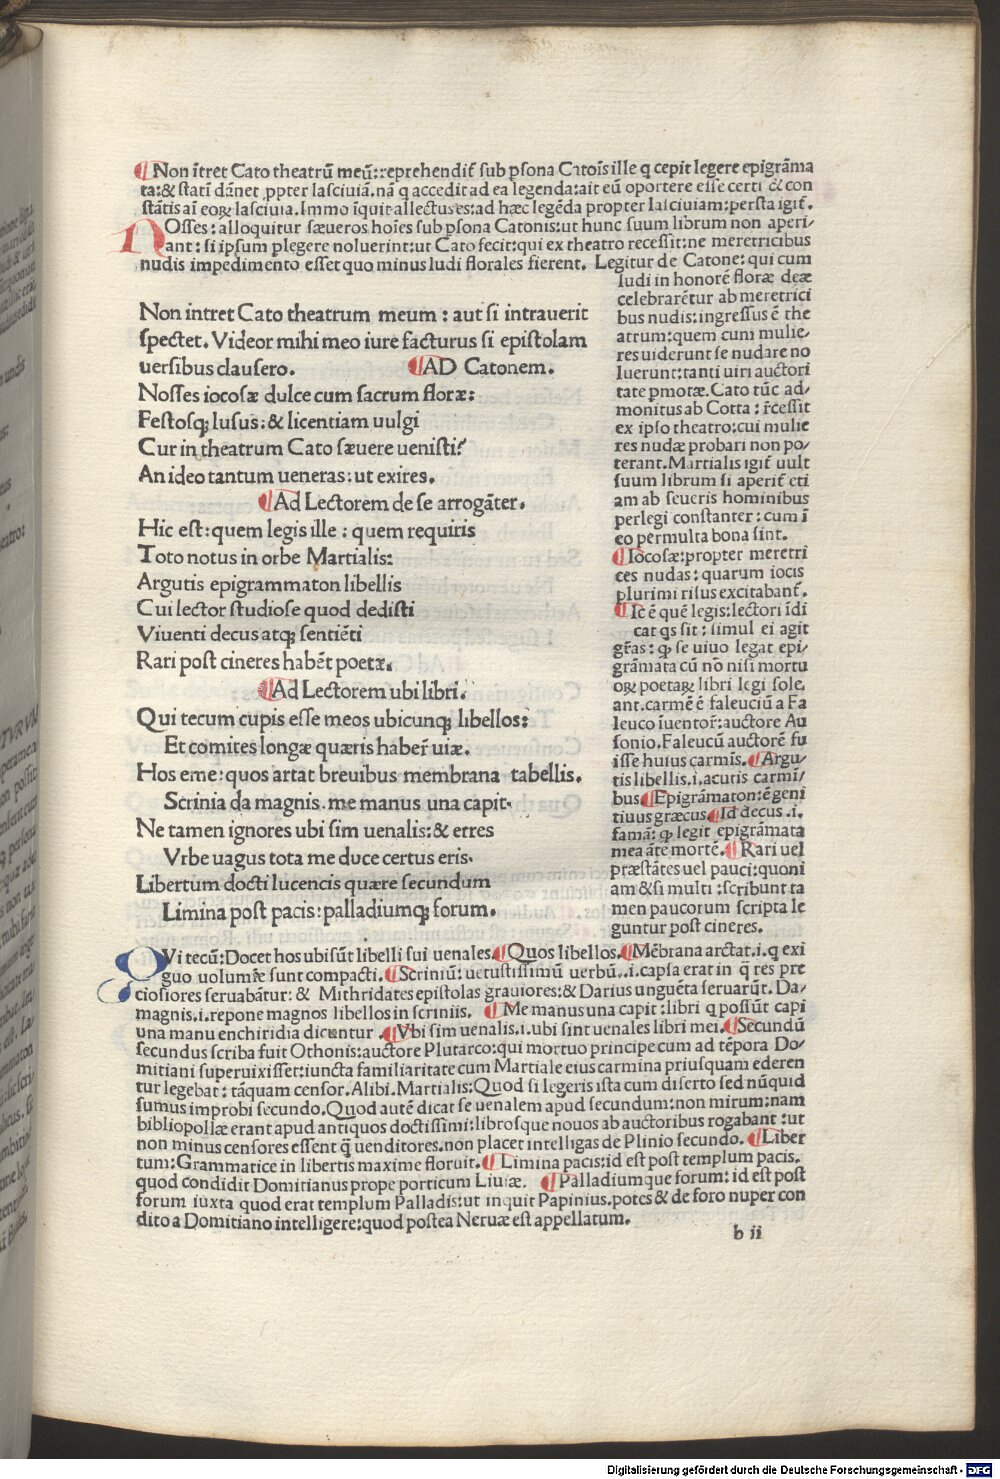 ¶Non ītret Cato theatrū meū: reprehendit̄ sub psona Catoīs ille q cepit legere epigrāma
ta: & statī dānet ꝓpter lasciuiā. nā q accedit ad ea legenda: ait eū oportere esse certi & con
stātis aī eoꝝ lasciuia. Immo īquit allectus es: ad hæc legēda propter lasciuiam: persta igit̄.
NOsses: alloquitur sæueros hoīes sub psona Catonis: ut hunc suum librum non aperi/
ant: si ipsum plegere noluerint: ut Cato fecit: qui ex theatro recessit: ne meretricibus
nudis impedimento esset quo minus ludi florales fierent. Legitur de Catone: qui cum
ludi in honorē floræ deæ
celebrarētur ab meretrici
bus nudis: ingressus ē the
atrum: quem cum mulie/
res uiderunt se nudare no
luerunt: tanti uiri auctori
tate pmotæ. Cato tūc ad/
monitus ab Cotta: r̄cessit
ex ipso theatro: cui mulie
res nudæ probari non po/
terant. Martialis igit̄ uult
suum librum si aperit̄ eti
am ab seueris hominibus
perlegi constanter: cum ī
eo permulta bona sint.
¶Iocosæ: propter meretri
ces nudas: quarum iocis
plurimi risus excitabant̄.
¶Ic ē quē legis: lectori īdi
cat qs sit: simul ei agit
gr̄as: ꝙ se uiuo legat epi/
grāmata cū nō nisi mortu
oꝝ poetaꝝ libri legi sole.
ant. carmē ē faleuciū a Fa
leuco īuentor̄: auctore Au
sonio. Faleucū auctorē fu
isse huius carmis. ¶Argu/
tis libellis .i. acutis carmī/
bus ¶Epigrāmaton: ē geni
tiuus græcus ¶Id decus .i.
famā: ꝙ legit epigrāmata
mea āte mortē. ¶Rari uel
præstātes uel pauci: quoni
am & si multi: scribunt ta
men paucorum scripta le
guntur post cineres.
Non intret Cato theatrum meum: aut si intrauerit
spectet. Videor mihi meo iure facturus si epistolam
uersibus clausero. ¶AD Catonem.
Nosses iocosæ dulce cum sacrum floræ:
Festosqꝫ lusus: & licentiam uulgi
Cur in theatrum Cato sæuere uenisti?
An ideo tantum ueneras: ut exires.
¶Ad Lectorem de se arrogāter.
Hic est: quem legis ille: quem requiris
Toto notus in orbe Martialis:
Argutis epigrammaton libellis
Cui lector studiose quod dedisti
Viuenti decus atqꝫ sentiēti
Rari post cineres habēt poetæ.
¶Ad Lectorem ubi libri.
Qui tecum cupis esse meos ubicunqꝫ libellos:
Et comites longæ quæris haber̄ uiæ.
Hos eme: quos artat breuibus membrana tabellis.
Scrinia da magnis. me manus una capit.
Ne tamen ignores ubi sim uenalis: & erres
Vrbe uagus tota me duce certus eris.
Libertum docti lucencis quære secundum
Limina post pacis: palladiumqꝫ forum.
QVi tecū: Docet hos ubi sūt libelli sui uenales ¶Quos libellos. ¶Mēbrana arctat .i. q exi
guo volumīe sunt compacti. ¶Scriniū: uetustissimū uerbū .i. capsa erat in q̄ res pre
ciosiores seruabātur: & Mithridates epistolas grauiores: & Darius unguēta seruarūt. Da/
magnis .i. repone magnos libellos in scriniis. ¶Me manus una capit: libri q possūt capi
una manu enchiridia dicuntur. ¶Vbi sim uenalis .i. ubi sint uenales libri mei. ¶Secundū
secundus scriba fuit Othonis: auctore Plutarco: qui mortuo principe cum ad tēpora Do/
mitiani superuixisset: iuncta familiaritate cum Martiale eius carmina priusquam ederen
tur legebat: tāquam censor. Alibi. Martialis: Quod si legeris ista cum diserto sed nūquid
sumus improbi secundo. Quod autē dicat se uenalem apud secundum: non mirum: nam
bibliopollæ erant apud antiquos doctissimi: librosque nouos ab auctoribus rogabant: ut
non minus censores essent q̄ uenditores. non placet intelligas de Plinio secundo. ¶Liber
tum: Grammatice in libertis maxime floruit. ¶Limina pacis: id est post templum pacis.
quod condidit Domitianus prope porticum Liuiæ. ¶Palladiumque forum: id est post
forum iuxta quod erat templum Palladis: ut inquit Papinius. potes & de foro nuper con
dito a Domitiano intelligere: quod postea Neruæ est appellatum.
b ii
Digitalisierung gefördert durch die Deutsche Forschungsgemeinschaft - DFG